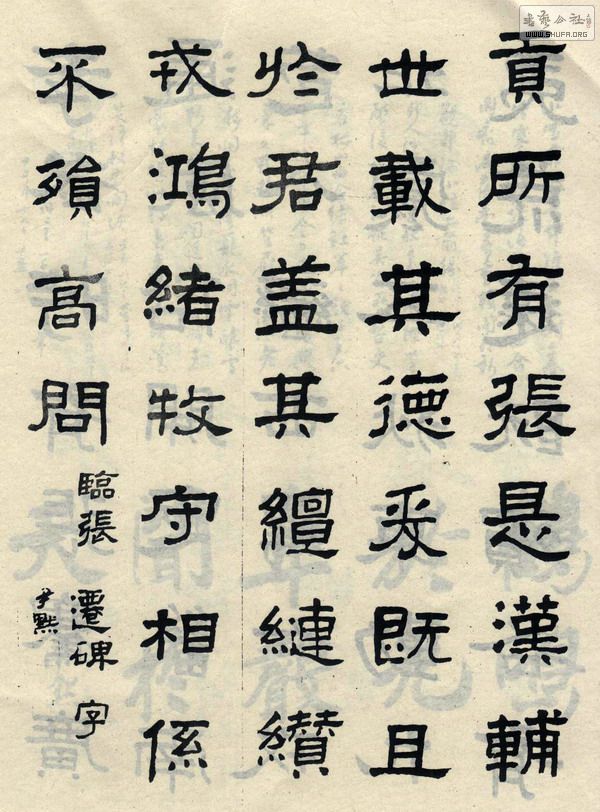 貢所有張是漢輔
世載其德爰既且
於君盖其繵縺纘
戎鴻緒牧守相係
不殞高問
臨張遷碑字
尹默
WWW.SHUFA.ORG